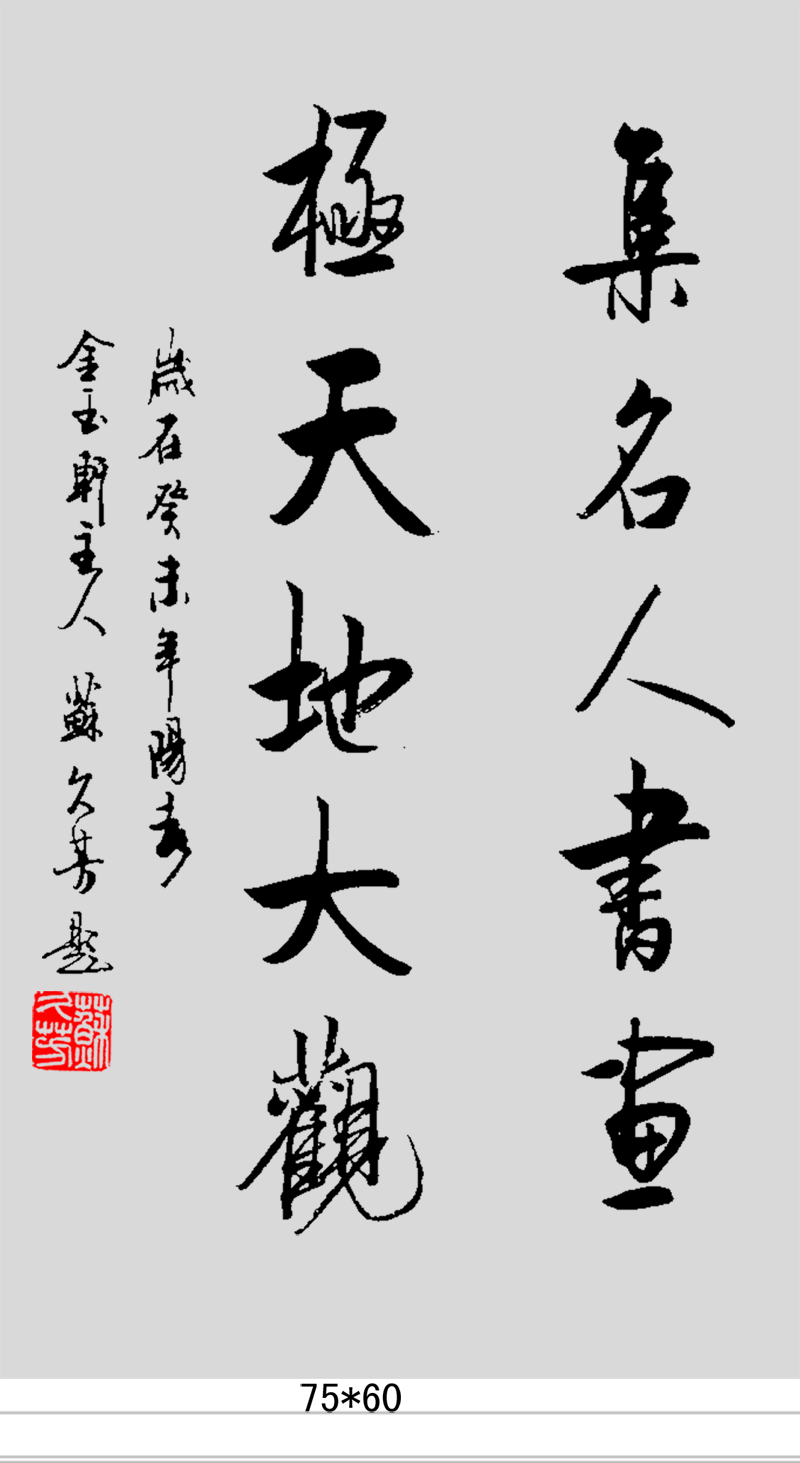 集名人書畫
極天地大觀
歲在癸未年陽春
金玉軒主人 蘇久芳題
蘇久芳
75*60